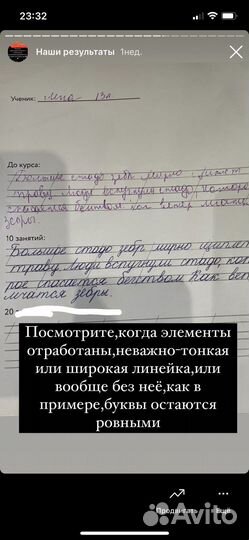 23:32
Наши результаты 1нед.
Ученик: Лена 13л
До курса:
Большое стадо зебр мирно щиплет
траву. Люди вспугнули стадо, которо
спасается бегством. Как вет мчатся
зебры.
10 занятий:
Большое стадо зебр мирно щиплет
траву. Люди вспугнули стадо, кот
рое спасается бегством. Как вет
мчатся зебры.
20
Посмотрите,когда элементы
отработаны,неважно-тонкая
или широкая линейка,или
вообще без неё,как в
примере,буквы остаются
ровными
Продвигать Ещё
Avito